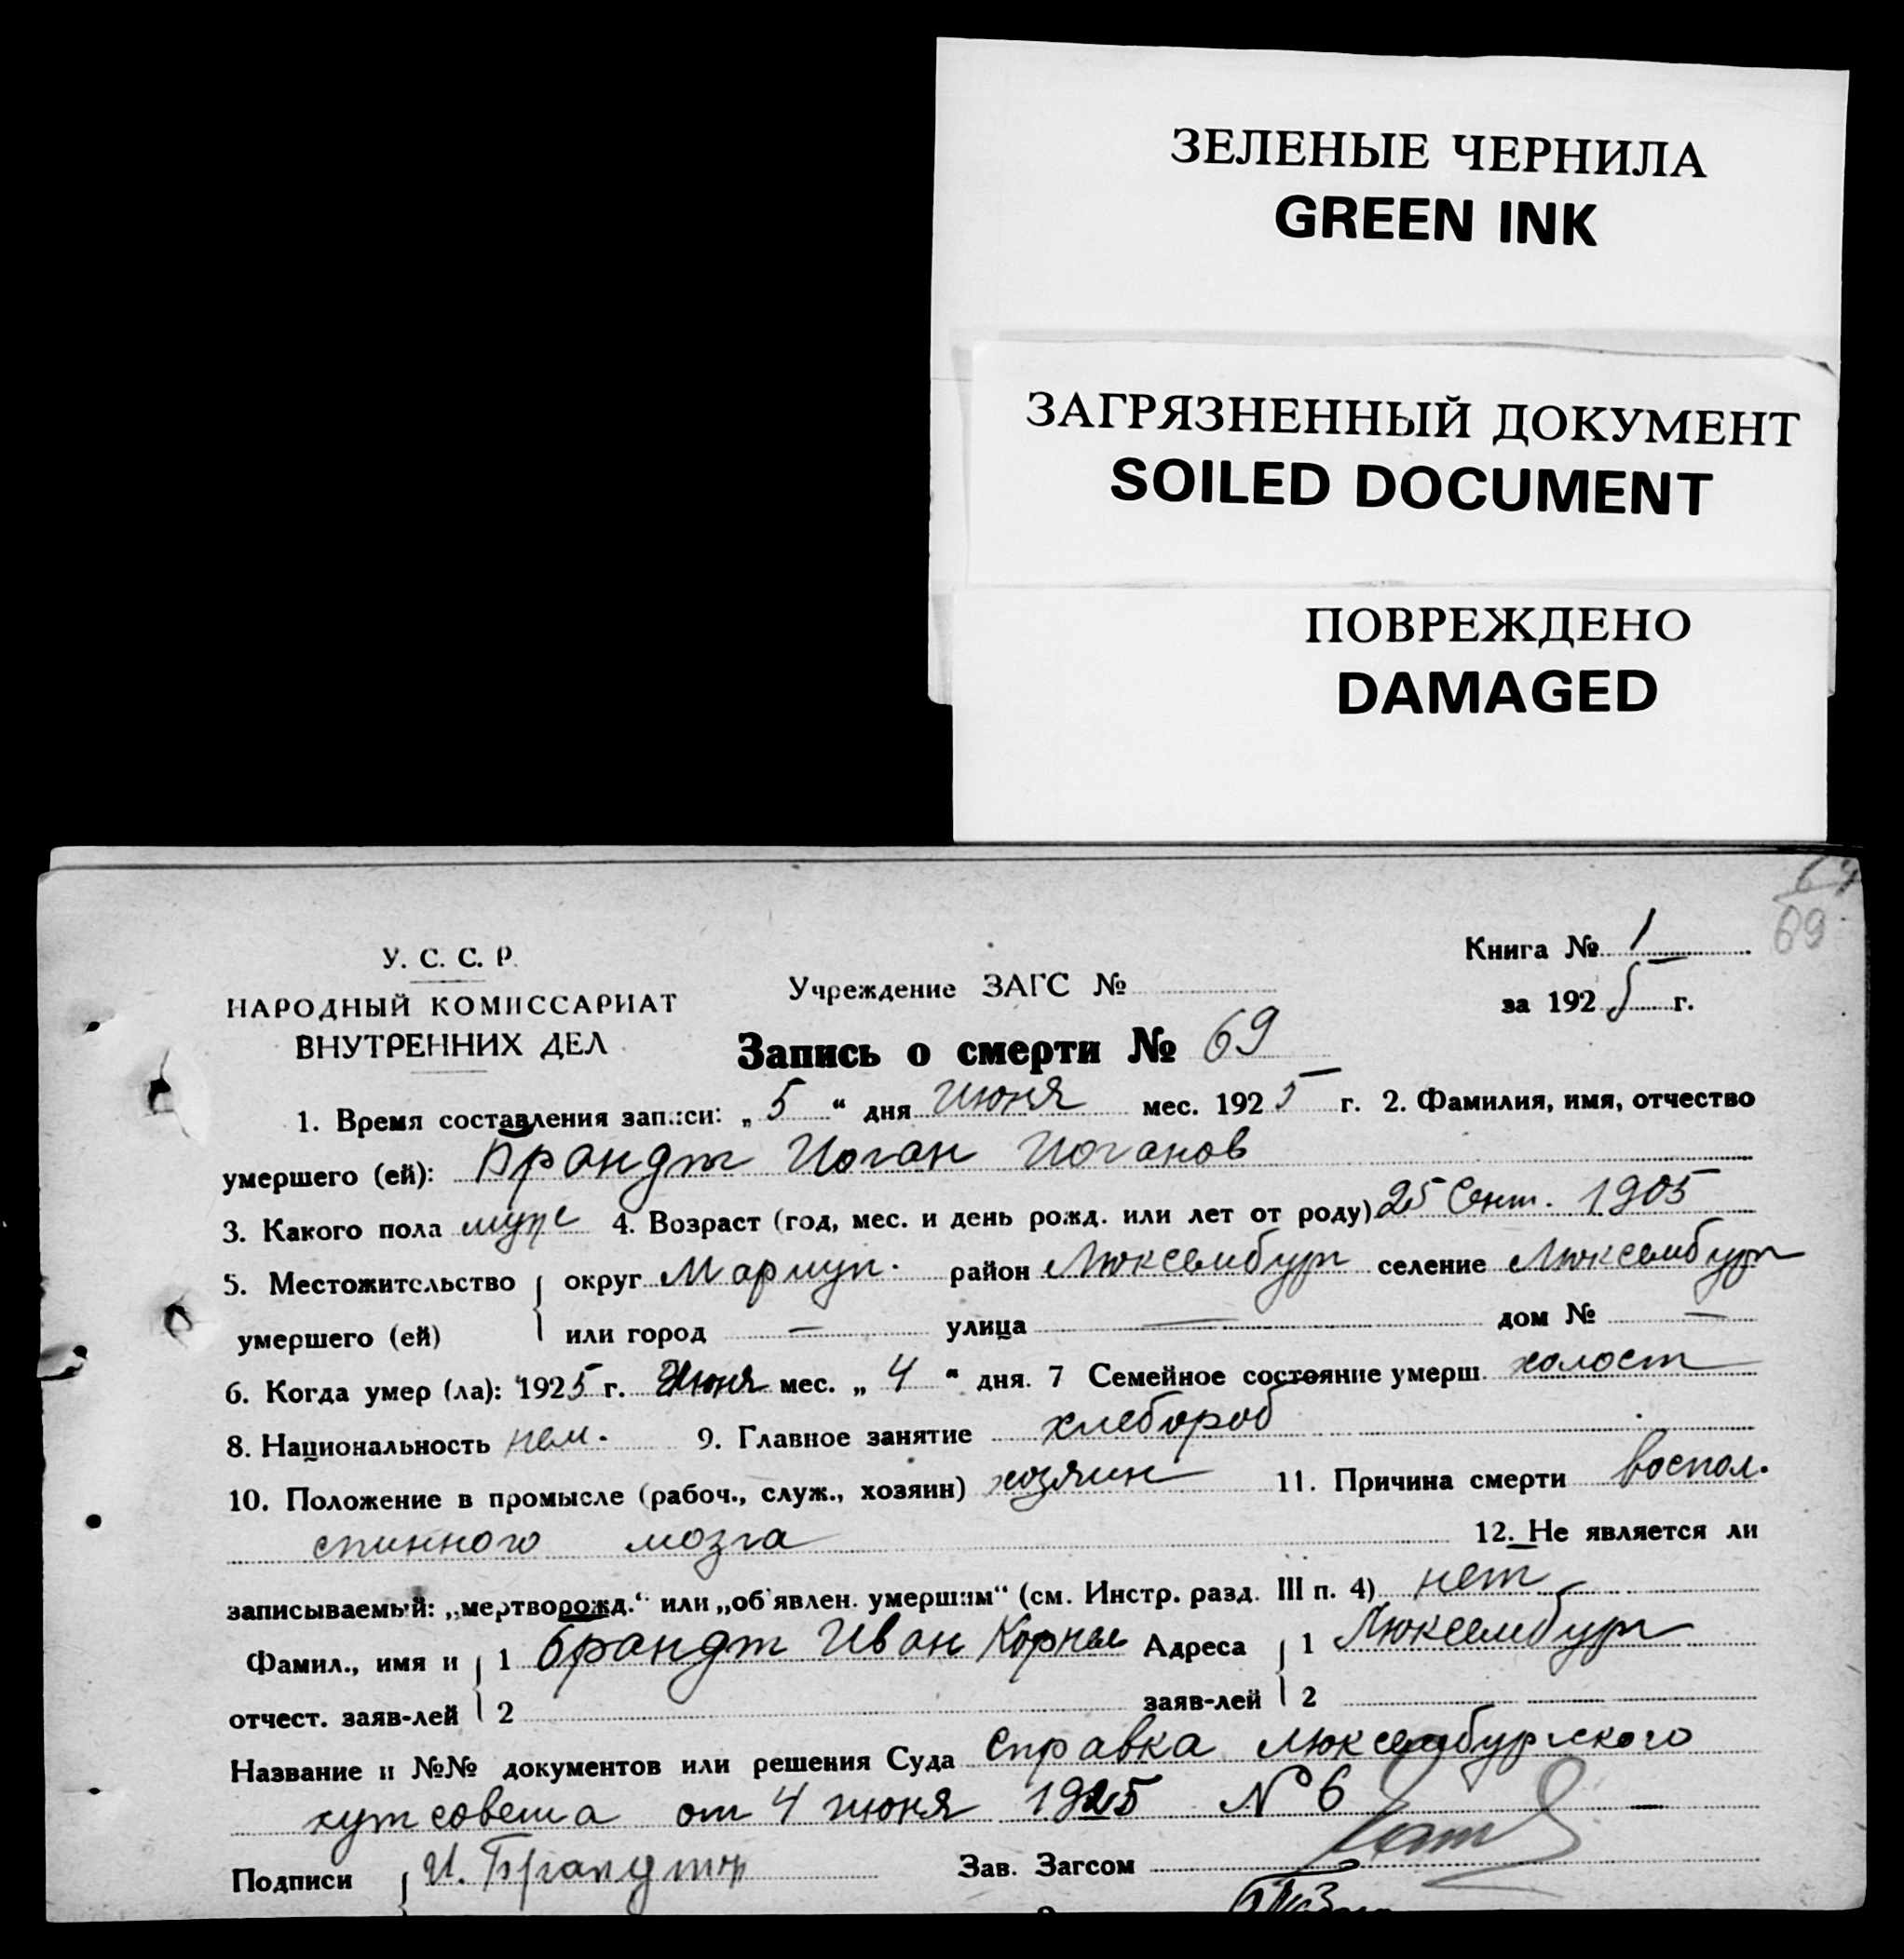 ЗЕЛЕНЫЕ ЧЕРНИЛА
GREEN INK
ЗАГРЯЗНЕННЫЙ ДОКУМЕНТ
SOILED DOCUMENT
ПОВРЕЖДЕНО
DAMAGED
69
У. С. С. Р.
НАРОДНЫЙ КОМИССАРИАТ
ВНУТРЕННИХ ДЕЛ
Учреждение ЗАГС №
Книга № 1
за 1925 г.
Запись о смерти № 69
1. Время составления записи: „ 5 “ дня июня мес. 1925 г. 2. Фамилия, имя, отчество
умершего (ей): Брандт Иоган Иоганов
3. Какого пола муж 4. Возраст (год, мес. и день рожд. или лет от роду) 25 Сент. 1905
5. Местожительство округ Мариуп. район Люксембург селение Люксембург
умершего (ей) или город — улица — дом № —
6. Когда умер (ла): 1925 г. Июня мес. „ 4 “ дня. 7 Семейное состояние умерш. холост
8. Национальность нем. 9. Главное занятие хлебороб
10. Положение в промысле (рабоч., служ., хозяин) хозяин 11. Причина смерти воспал.
спинного мозга 12. Не является ли
записываемый: „мертворожд.“ или „об'явлен. умершим“ (см. Инстр. разд. III п. 4) нет
Фамил., имя и 1 Брандт Иван Корнее Адреса 1 Люксембург
отчест. заяв-лей 2 заяв-лей 2
Название и №№ документов или решения Суда справка Люксембургского
хутсовета от 4 июня 1925 N 6
Подписи И. Брандт Зав. Загсом